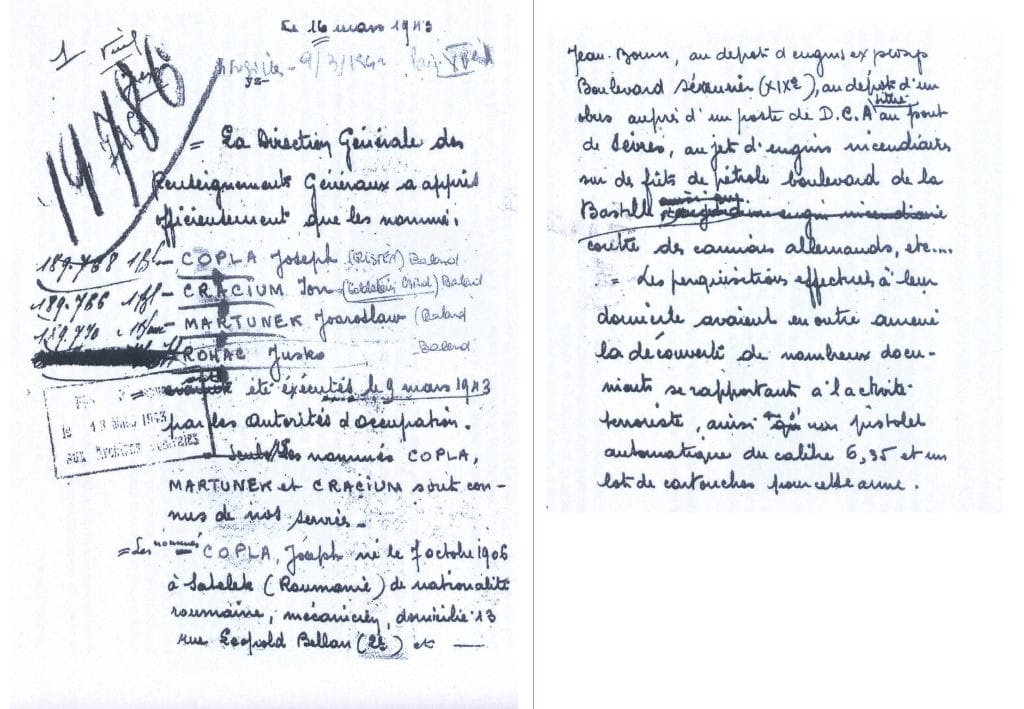 Le 16 mars 1943
1
9/3/1942
14786
= La Direction Générale des
Renseignements Généraux a appris
officieusement que les nommés
189.768 - COPLA Joseph Balard
189.766 - CRACIUM Jon (Goldstein) Balard
189.770 - MARTUNEK Joaroslaw (Balard
ROHAC Jusko Balard
été exécutés le 9 mars 1943
par les autorités d'occupation.
- Seuls les nommés COPLA,
MARTUNEK et CRACIUM sont con-
nus de nos services.
= Les nommés COPLA, Joseph né le 7 octobre 1906
à Satelek (Roumanie) de nationalité
roumaine, mécanicien, domicilié 13
rue Léopold Bellan (2e) et —
le 18 Mars 1943
aux Archives
Jean-Bouin, au dépôt d'engins explosifs
Boulevard Sérurier (XIXe), au dépôt d'un
obus auprès d'un poste de D.C.A. situé au pont
de Sèvres, au jet d'engins incendiaires
sur des fûts de pétrole boulevard de la
Bastille
contre des camions allemands, etc....
= Les perquisitions effectuées à leur
domicile avaient en outre amené
la découverte de nombreux docu-
ments se rapportant à l'activité
terroriste, ainsi qu'un pistolet
automatique du calibre 6,35 et un
lot de cartouches pour cette arme.